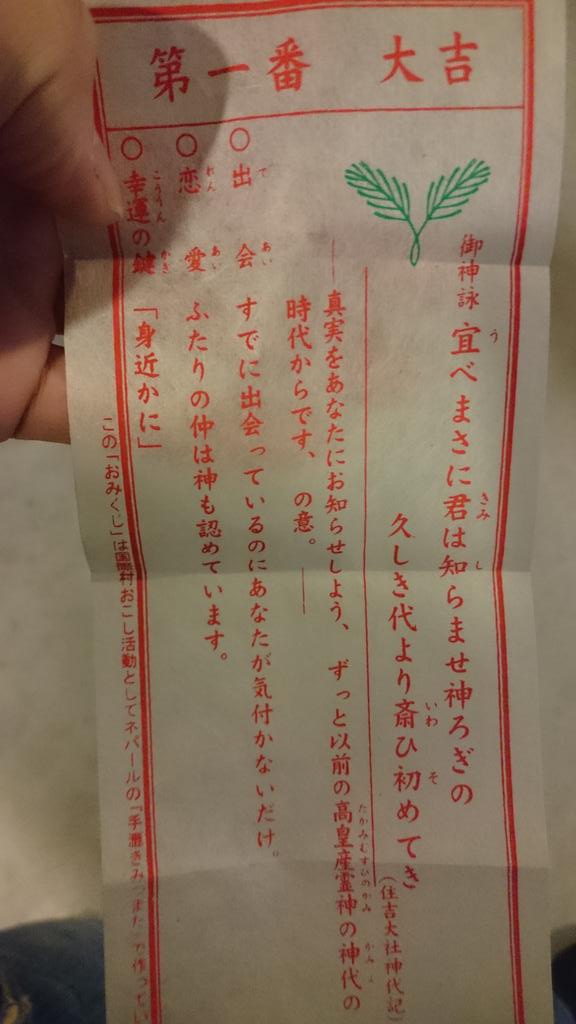 第一番 大吉
御神詠 宜べまさに君は知らませ神ろぎの
久しき代より斎ひ初めてき
(住吉大社神代記)
真実をあなたにお知らせしよう、ずっと以前の高皇産霊神の神代の
時代からです、の意。
○出会 すでに出会っているのにあなたが気付かないだけ。
○恋愛 ふたりの仲は神も認めています。
○幸運の鍵 「身近かに」
この「おみくじ」は国際村おこし活動としてネパールの「手漉きみつまた」で作ってい